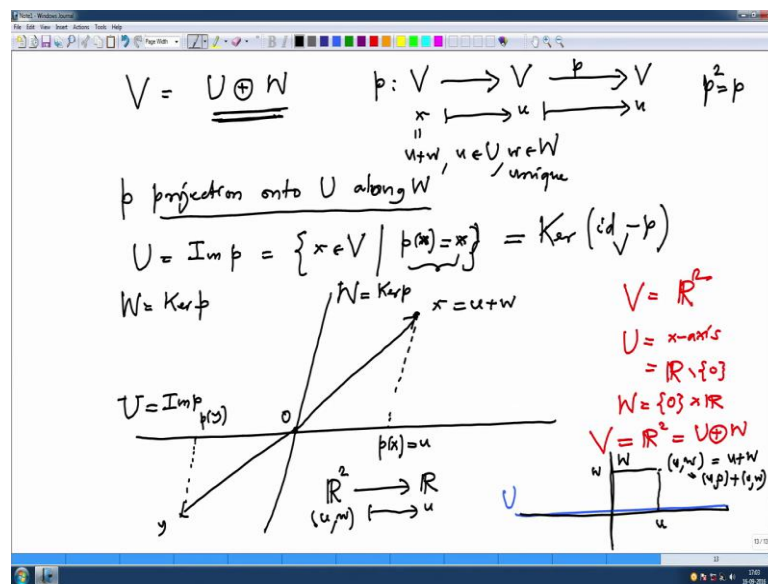 Note1 - Windows Journal
File Edit View Insert Actions Tools Help
Page Width
B I
V = U ⊕ W p: V ⟶ V ⟶ᵖ V p² = p
x ⟼ u ⟼ u
॥
u+w, u ∈ U, w ∈ W, unique
p projection onto U along W
U = Im p = {x ∈ V | p(x) = x} = Ker (id_V - p)
W = Ker p
W = Ker p
x = u+w
V = ℝ²
U = x-axis
= ℝ \ {0}
W = {0} × ℝ
V = ℝ² = U ⊕ W
U = Im p
p(y)
0
p(x) = u
y
ℝ² ⟶ ℝ
(u,w) ⟼ u
W
w
(u,w) = u+w
(u,0)+(0,w)
U
u
13/13
13
17:03